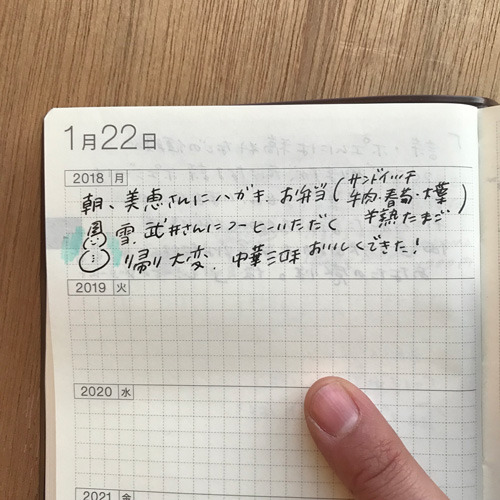 1月22日
2018 月
朝、美恵さんにハガキ. お弁当(サンドイッチ
牛肉・春菊・大葉
半熟たまご)
雪. 武井さんにコーヒーいただく
帰り大変. 中華三昧おいしくできた!
2019 火
2020 水
2021 金